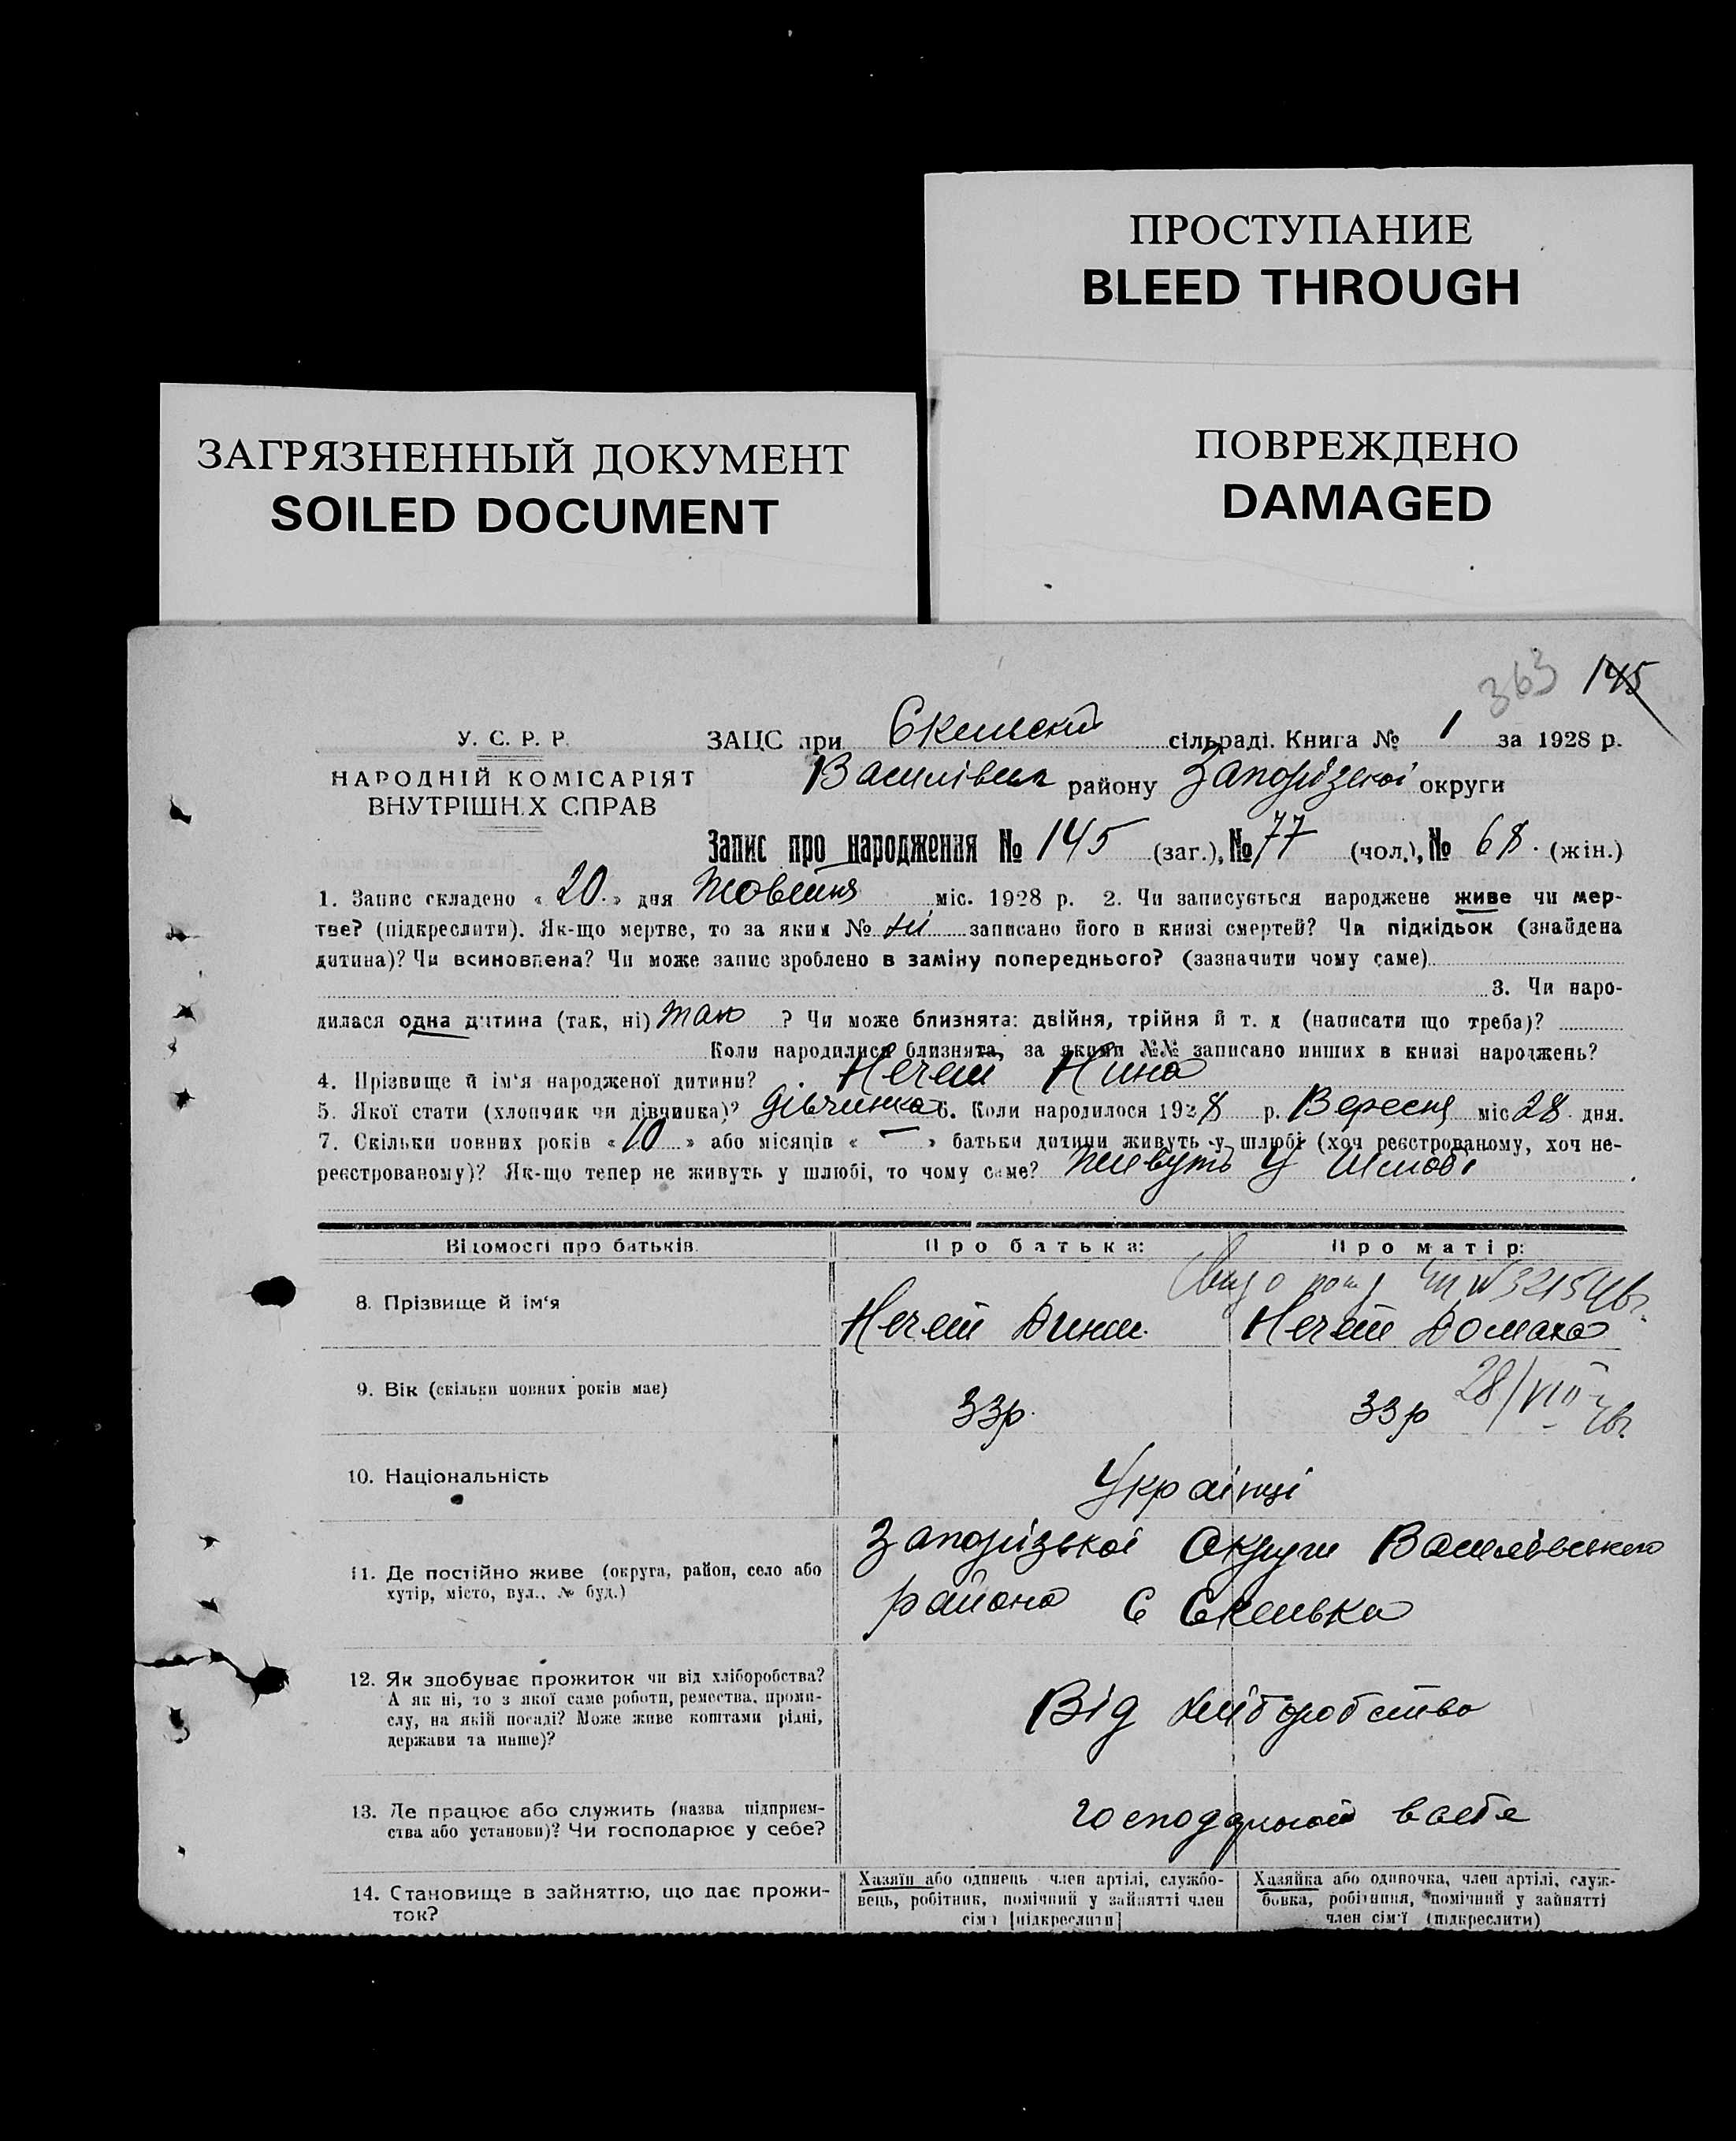 ПРОСТУПАНИЕ
BLEED THROUGH
ЗАГРЯЗНЕННЫЙ ДОКУМЕНТ
SOILED DOCUMENT
ПОВРЕЖДЕНО
DAMAGED
363 145
У. С. Р. Р.
НАРОДНІЙ КОМІСАРІЯТ
ВНУТРІШНІХ СПРАВ
ЗАЦС при Скельскій сільраді. Книга № 1 за 1928 р.
Василівськ району Запорізскої округи
Запис про народження № 145 (заг.), № 77 (чол.), № 68. (жін.)
1. Запис складено « 20. » дня Жовтня міс. 1928 р. 2. Чи записується народжене живе чи мер-
тве? (підкреслити). Як-що мертве, то за яким № ні записано його в книзі смертей? Чи підкідьок (знайдена
дитина)? Чи всиновлена? Чи може запис зроблено в заміну попереднього? (зазначити чому саме)
3. Чи наро-
дилася одна дитина (так, ні) так ? Чи може близнята: двійня, трійня й т. д (написати що треба)?
Коли народилися близнята, за якими №№ записано инших в книзі народжень?
4. Прізвище й ім‘я народженої дитини? Нечет Нина
5. Якої стати (хлопчик чи дівчинка)? дівчинка 6. Коли народилося 1928 р. Вересня міс 28 дня.
7. Скільки повних років « 10 » або місяців « — » батьки дитини живуть у шлюбі (хоч реєстрованому, хоч не-
реєстрованому)? Як-що тепер не живуть у шлюбі, то чому саме? живуть У шлюбі
Відомості про батьків. Про батька: Про матір:
№ 3215
8. Прізвище й ім‘я Нечет Нечет Домаха
9. Вік (скільки повних років має) 33р. 33р 28/VIII
10. Національність Українці
11. Де постійно живе (округа, район, село або
хутір, місто, вул., № буд.)
Запорізької Округи Василівського
района С Скелька
12. Як здобуває прожиток чи від хліборобства?
А як ні, то з якої саме роботи, ремества, проми-
слу, на якій посаді? Може живе коштами рідні,
держави та инше)?
Від хліборобства
13. Де працює або служить (назва підприєм-
ства або установи)? Чи господарює у себе?
господарюют в себе
14. Становище в зайняттю, що дає прожи-
ток?
Хазяїн або одинець член артілі, службо-
вець, робітник, помічний у зайнятті член
сім‘ї [підкреслити]
Хазяйка або одиночка, член артілі, служ-
бовка, робітниця, помічний у зайнятті
член сім‘ї (підкреслити)